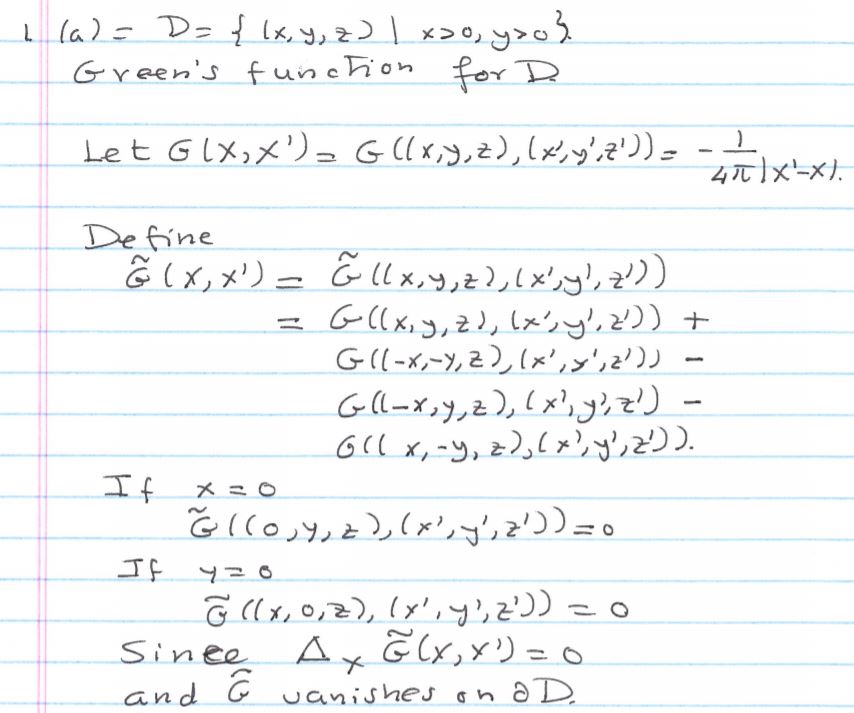 1 (a) = D = { (x, y, z) | x>0, y>0}.
Green's function for D
Let G(X, X') = G((x,y,z), (x',y',z')) = - 1/4π|X'-X|.
Define
G̃(X, X') = G̃((x,y,z), (x',y',z'))
= G((x,y,z), (x',y',z')) +
G((-x,-y,z), (x',y',z')) -
G((-x,y,z), (x',y',z') -
G(( x,-y,z), (x',y',z')).
If x = 0
G̃((0,y,z), (x',y',z')) = 0
If y = 0
G̃((x,0,z), (x',y',z')) = 0
Since Δ_X G̃(X,X') = 0
and G̃ vanishes on ∂D.